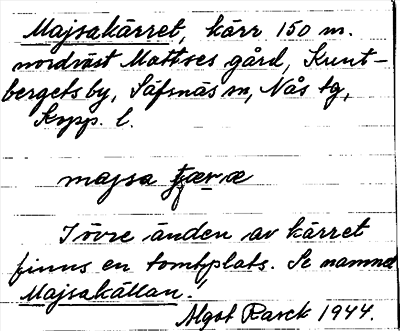 Majsakärret, kärr 150 m.
nordväst Mattses gård, Kunt-
bergets by, Säfsnäs sn, Nås tg,
Kopp. l.
majsa tjæræ
I övre änden av kärret
finns en tomtplats. Se namnet
Majsakällan.
Algot Rarck 1944.